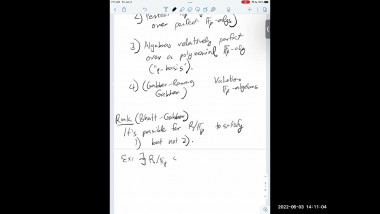 over perfect 𝔽p-algs
3) Algebras relatively perfect
over a polynomial 𝔽p-alg
("p-basis").
4) (Gabber-Ramero, Valuation
Gabber) 𝔽p-algebras
Rmk (Bhatt-Gabber)
It's possible for R/𝔽p to satisfy
1) but not 2).
Ex: ∃ R/𝔽p
2022-06-03 14:11:04